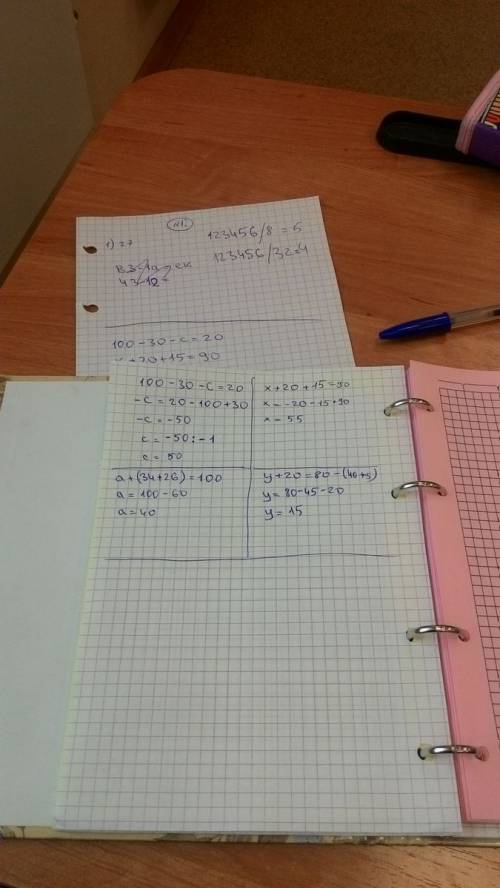 N1.
1) 27
123456/8 = 5
123456/32=4
100-30-c=20
x+20+15=90
100-30-c=20
-c=20-100+30
-c=-50
c=-50:-1
c=50
x+20+15=90
x=-20-15+90
x=55
a+(34+26)=100
a=100-60
a=40
y+20=80-(40+5)
y=80-45-20
y=15